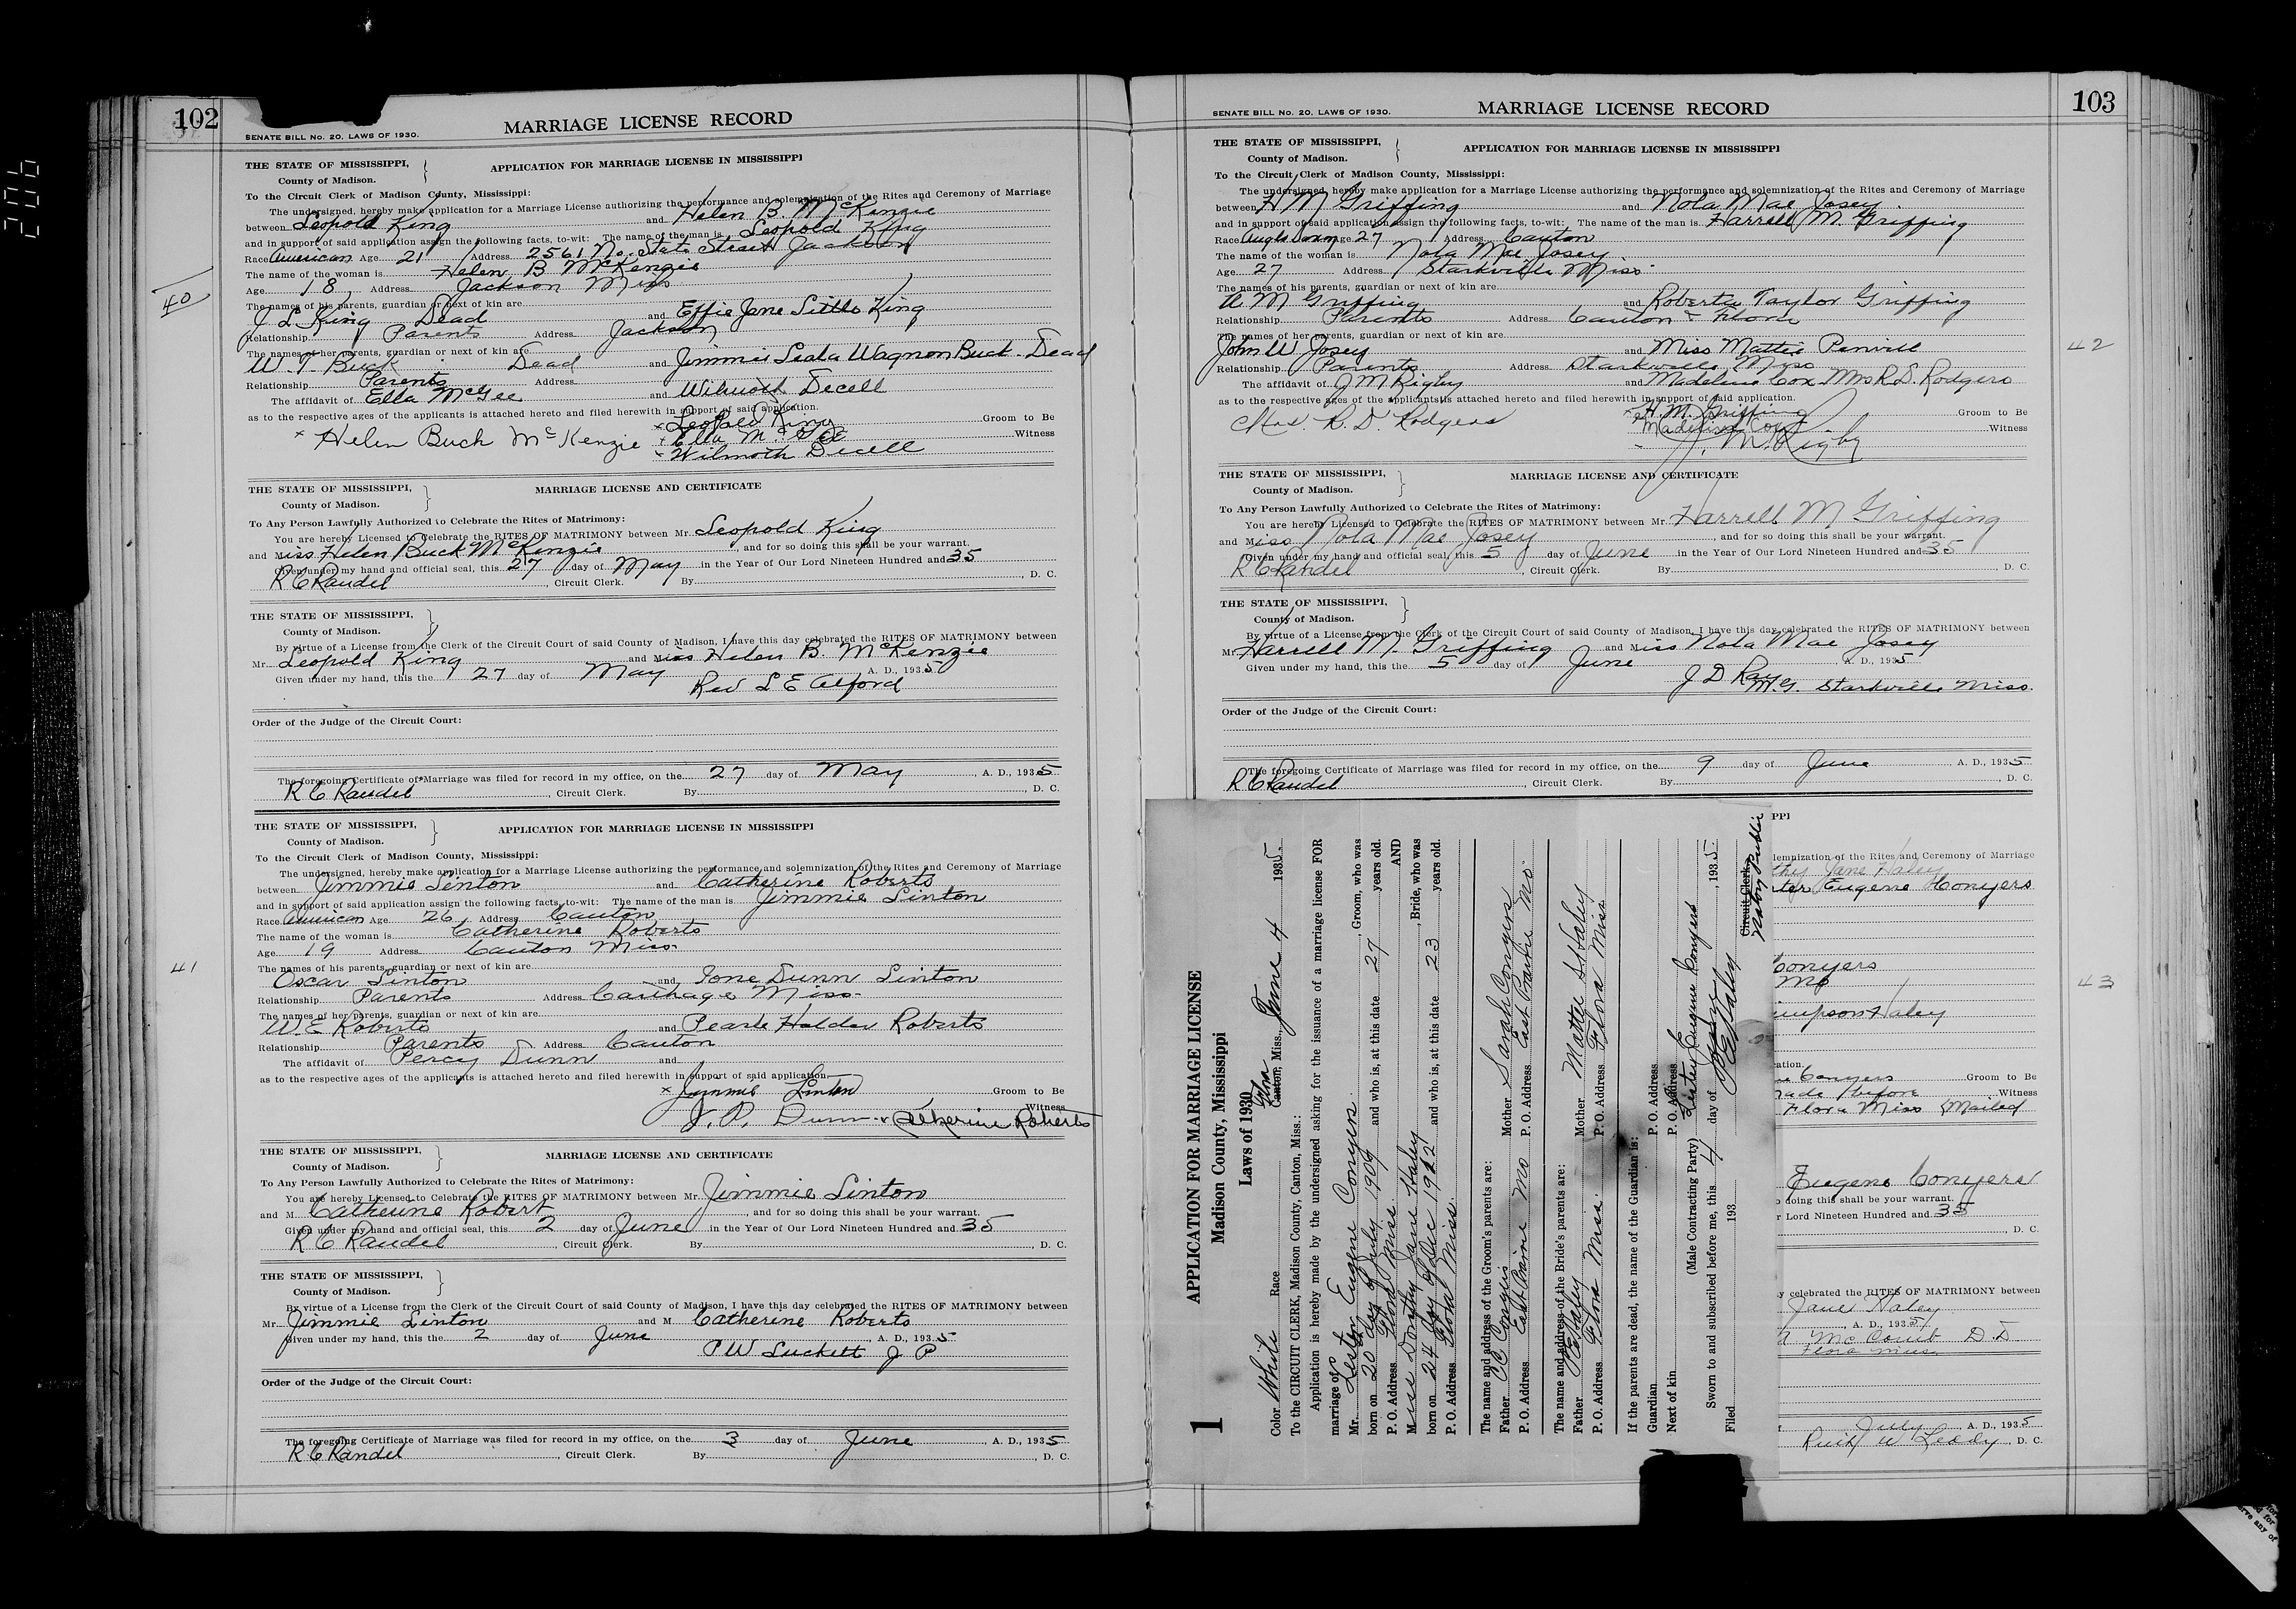 206
102
SENATE BILL No. 20, LAWS OF 1930.
MARRIAGE LICENSE RECORD
THE STATE OF MISSISSIPPI,
County of Madison.
APPLICATION FOR MARRIAGE LICENSE IN MISSISSIPPI
To the Circuit Clerk of Madison County, Mississippi:
The undersigned, hereby make application for a Marriage License authorizing the performance and solemnization of the Rites and Ceremony of Marriage
between Leopold King and Helen B. McKenzie
and in support of said application assign the following facts, to-wit: The name of the man is Leopold King
Race American Age 21 Address 2561 No. State Street Jackson
The name of the woman is Helen B McKenzie
Age 18 Address Jackson Miss
The names of his parents, guardian or next of kin are
J L King Dead and Effie Jane Little King
Relationship Parents Address Jackson
The names of her parents, guardian or next of kin are
W. T. Buck Dead and Jimmie Leala Wagnon Buck - Dead
Relationship Parents Address
The affidavit of Ella McGee and Wilmoth Decell
as to the respective ages of the applicants is attached hereto and filed herewith in support of said application.
x Leopold King Groom to Be
x Helen Buck McKenzie x Ella McGee Witness
x Wilmoth Decell
40
THE STATE OF MISSISSIPPI,
County of Madison.
MARRIAGE LICENSE AND CERTIFICATE
To Any Person Lawfully Authorized to Celebrate the Rites of Matrimony:
You are hereby Licensed to Celebrate the RITES OF MATRIMONY between Mr. Leopold King
and Miss Helen Buck McKenzie, and for so doing this shall be your warrant.
Given under my hand and official seal, this 27 day of May in the Year of Our Lord Nineteen Hundred and 35
R C Randel, Circuit Clerk. By , D. C.
THE STATE OF MISSISSIPPI,
County of Madison.
By virtue of a License from the Clerk of the Circuit Court of said County of Madison, I have this day celebrated the RITES OF MATRIMONY between
Mr. Leopold King and Miss Helen B. McKenzie
Given under my hand, this the 27 day of May A. D., 1935
Rev L E Alford
Order of the Judge of the Circuit Court:
The foregoing Certificate of Marriage was filed for record in my office, on the 27 day of May, A. D., 1935
R C Randel, Circuit Clerk. By , D. C.
THE STATE OF MISSISSIPPI,
County of Madison.
APPLICATION FOR MARRIAGE LICENSE IN MISSISSIPPI
To the Circuit Clerk of Madison County, Mississippi:
The undersigned, hereby make application for a Marriage License authorizing the performance and solemnization of the Rites and Ceremony of Marriage
between Jimmie Linton and Catherine Roberts
and in support of said application assign the following facts, to-wit: The name of the man is Jimmie Linton
Race American Age 26 Address Canton
The name of the woman is Catherine Roberts
Age 19 Address Canton Miss
The names of his parents, guardian or next of kin are
Oscar Linton and Ione Dunn Linton
Relationship Parents Address Carthage Miss
The names of her parents, guardian or next of kin are
W. E Roberts and Pearle Holder Roberts
Relationship Parents Address Canton
The affidavit of Percy Dunn and
as to the respective ages of the applicants is attached hereto and filed herewith in support of said application
x Jimmie Linton Groom to Be
J. P. Dunn - x Catherine Roberts Witness
41
THE STATE OF MISSISSIPPI,
County of Madison.
MARRIAGE LICENSE AND CERTIFICATE
To Any Person Lawfully Authorized to Celebrate the Rites of Matrimony:
You are hereby Licensed to Celebrate the RITES OF MATRIMONY between Mr. Jimmie Linton
and M Catherine Robert, and for so doing this shall be your warrant.
Given under my hand and official seal, this 2 day of June in the Year of Our Lord Nineteen Hundred and 35
R C Randel, Circuit Clerk. By , D. C.
THE STATE OF MISSISSIPPI,
County of Madison.
By virtue of a License from the Clerk of the Circuit Court of said County of Madison, I have this day celebrated the RITES OF MATRIMONY between
Mr. Jimmie Linton and M Catherine Roberts
Given under my hand, this the 2 day of June, A. D., 1935
P W Luckett J P
Order of the Judge of the Circuit Court:
The foregoing Certificate of Marriage was filed for record in my office, on the 3 day of June, A. D., 1935
R C Randel, Circuit Clerk. By , D. C.
SENATE BILL No. 20, LAWS OF 1930.
MARRIAGE LICENSE RECORD
103
THE STATE OF MISSISSIPPI,
County of Madison.
APPLICATION FOR MARRIAGE LICENSE IN MISSISSIPPI
To the Circuit Clerk of Madison County, Mississippi:
The undersigned, hereby make application for a Marriage License authorizing the performance and solemnization of the Rites and Ceremony of Marriage
between H M Griffing and Nola Mae Josey
and in support of said application assign the following facts, to-wit: The name of the man is Harrell M. Griffing
Race Anglo Saxon Age 27 Address Canton
The name of the woman is Nola Mae Josey
Age 27 Address Starkville Miss
The names of his parents, guardian or next of kin are
M Griffing and Roberta Taylor Griffing
Relationship Parents Address Canton & Flora
The names of her parents, guardian or next of kin are
John W Josey and Miss Mattie
Relationship Parents Address Starkville Miss
The affidavit of J M Rigby and Madeline Cox Mrs R. D. Rodgers
as to the respective ages of the applicants is attached hereto and filed herewith in support of said application.
x H. M. Griffing Groom to Be
Mrs. R. D. Rodgers Madeline Cox Witness
J. M. Rigby
42
THE STATE OF MISSISSIPPI,
County of Madison.
MARRIAGE LICENSE AND CERTIFICATE
To Any Person Lawfully Authorized to Celebrate the Rites of Matrimony:
You are hereby Licensed to Celebrate the RITES OF MATRIMONY between Mr. Harrell M Griffing
and Miss Nola Mae Josey, and for so doing this shall be your warrant.
Given under my hand and official seal, this 5 day of June in the Year of Our Lord Nineteen Hundred and 35
R C Randel, Circuit Clerk. By D. C.
THE STATE OF MISSISSIPPI,
County of Madison.
By virtue of a License from the Clerk of the Circuit Court of said County of Madison, I have this day celebrated the RITES OF MATRIMONY between
Mr Harrell M. Griffing and Miss Nola Mae Josey
Given under my hand, this the 5 day of June A. D., 1935
J D Ray
M. G. Starkville Miss.
Order of the Judge of the Circuit Court:
The foregoing Certificate of Marriage was filed for record in my office, on the 9 day of June A. D., 1935
R C Randel, Circuit Clerk. By , D. C.
1
APPLICATION FOR MARRIAGE LICENSE
Madison County, Mississippi
Laws of 1930
Color White Race Flora Canton, Miss. June 4 1935.
To the CIRCUIT CLERK, Madison County, Canton, Miss.:
Application is hereby made by the undersigned asking for the issuance of a marriage license FOR
marriage of
Mr. Lester Eugene Conyers, Groom, who was
born on 20 day of July 1907 and who is, at this date 27 years old.
P. O. Address Flora Miss. AND
Miss Dorothy Jane Haley, Bride, who was
born on 24 day of Dec 1912 and who is, at this date 23 years old.
P. O. Address Flora Miss.
The name and address of the Groom's parents are:
Father C C Conyers Mother Sarah Conyers
P. O. Address East Prairie Mo P. O. Address East Prairie Mo.
The name and address of the Bride's parents are:
Father Haley Mother Mattie S Haley
P. O. Address Flora Miss. P. O. Address Flora Miss
If the parents are dead, the name of the Guardian is:
Guardian P. O. Address
Next of kin P. O. Address
(Male Contracting Party) Lester Eugene Conyers
Sworn to and subscribed before me, this 4 day of June, 1935.
Filed 193 Haley Circuit Clerk
Notary Public
PPI
lemnization of the Rites and Ceremony of Marriage
thy Jane Haley
ter Eugene Conyers
Conyers
Mo
impson Haley
ation.
Conyers Groom to Be
made before Witness
Flora Miss Mailed
43
Eugene Conyers
doing this shall be your warrant.
r Lord Nineteen Hundred and 35
, D. C.
y celebrated the RITES OF MATRIMONY between
Jane Haley
, A. D., 1935
McComb D. D.
Flora Miss
July A. D., 1935
Ruth W Leddy, D. C.